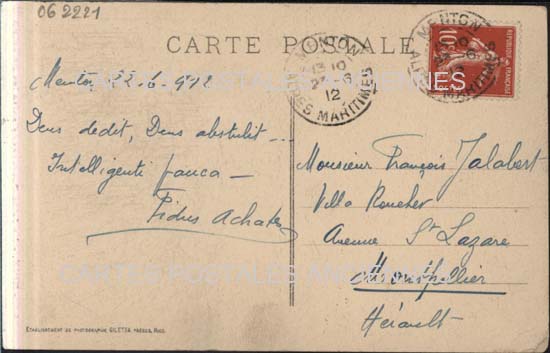 06 2221
CARTE POSTALE
MENTON
13 10
22-6
12
ALPES MARITIMES
MENTON
ALPES MARITIMES
REPUBLIQUE FRANÇAISE
10c
Menton 22-6-912
Deus dedit, Deus abstulit...
Intelligenti pauca —
Fidus Achates
Monsieur François Jalabert
Villa Roucher
Avenue St Lazare
Montpellier
Hérault
CARTES POSTALES ANCIENNES
CARTES POSTALES ANCIENNES
ETABLISSEMENT DE PHOTOGRAPHIE GILETTA FRÈRES, NICE